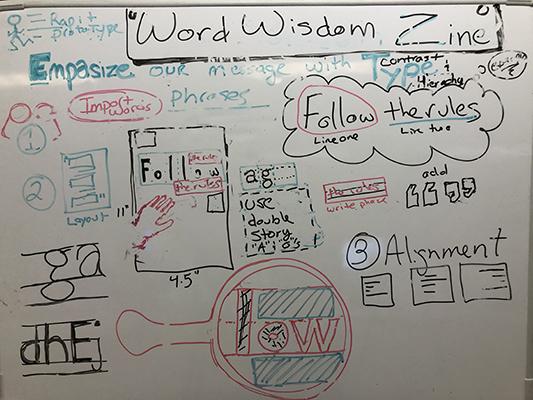 Rapit
ProtoType
"Word Wisdom Zine"
Empasize our message with Type
contrast
Hierachy
Impost
Words
Phrases
Follow the rules
Line one
Line two
1
2
Layout
11"
Follow
the rules
the rules
4.5"
ag
use
double
story
"A" G's
the rules
write phase
add
3 Alignment
ga
dhEj
low